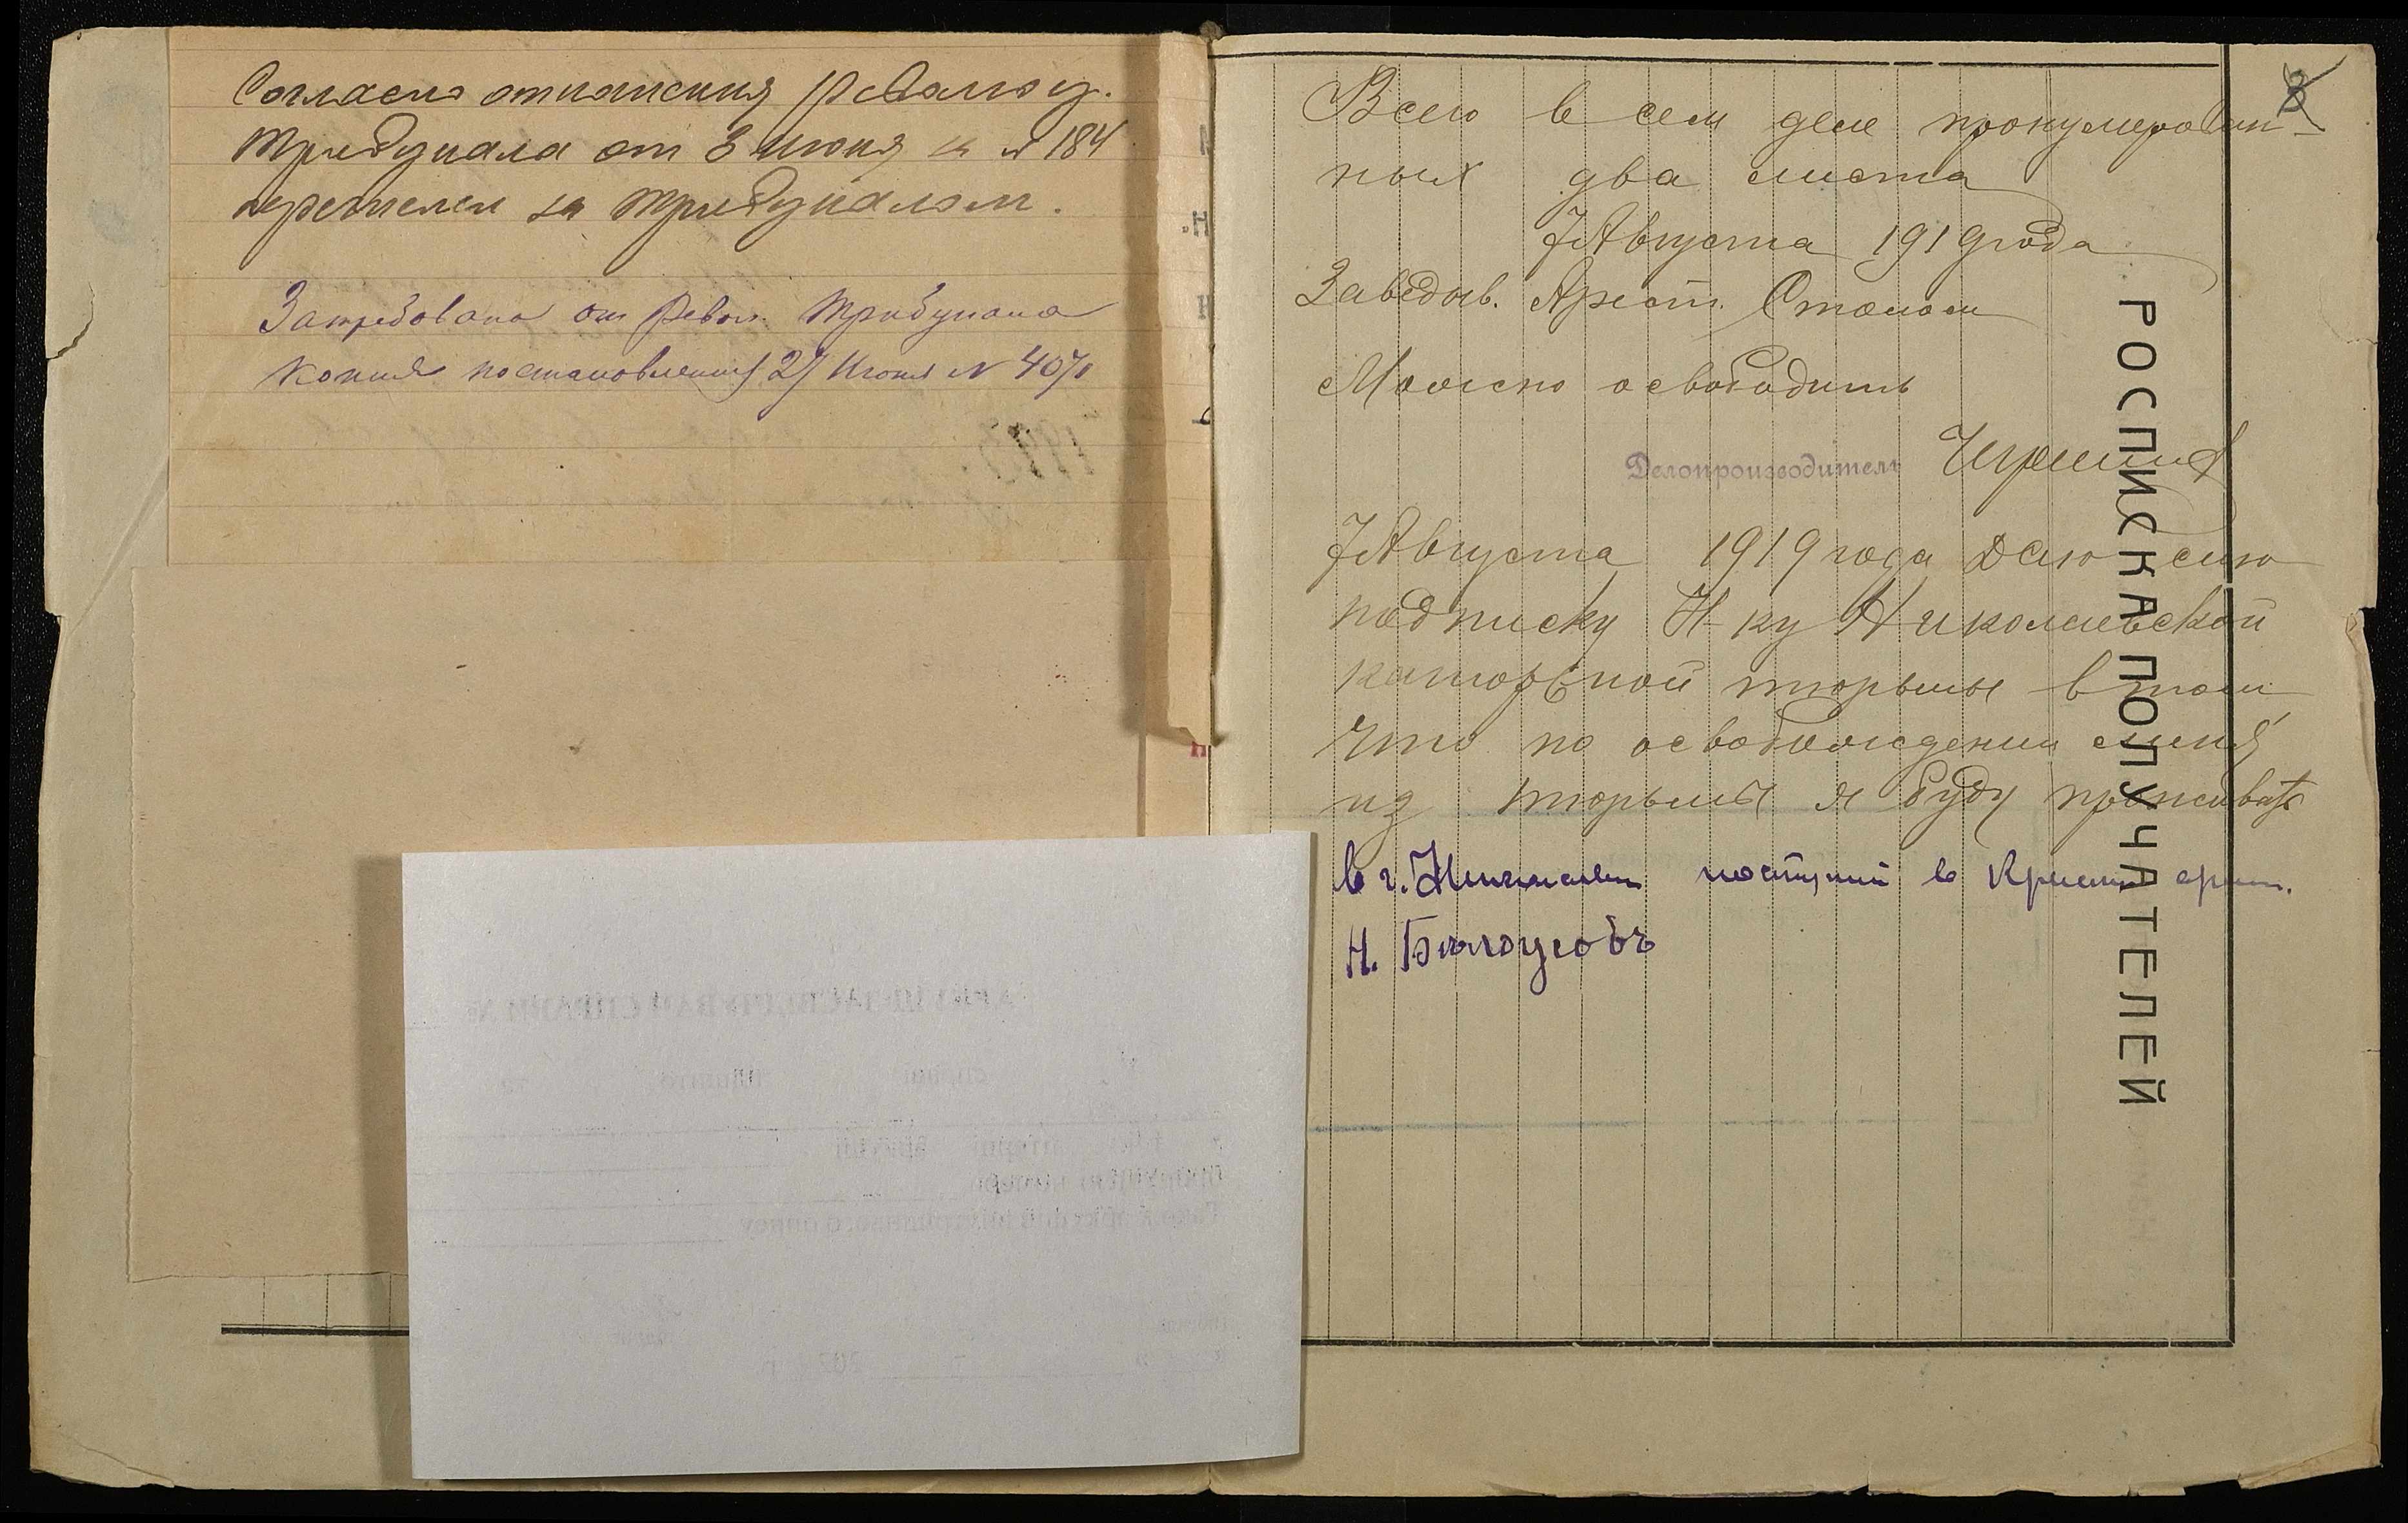 Согласно отношения Революц.
Трибунала от 3 июня за № 184
перечислен за трибуналом.
Затребована от Револ. Трибунала
копия постановления 27 Июня N 4070
Всего в сем деле пронумерован-
ных два листа
7 Августа 1919 года
Заведыв. Арест. Столом
Можно освободить
Делопроизводитель
7 Августа 1919 года Даю сию
подписку Н-ку Николаевской
каторжной тюрьмы в том
что по освобождении меня
из тюрьмы я буду проживать
в г. Николаеве в
Н. Бѣлоусовъ
РОСПИСКА ПОЛУЧАТЕЛЕЙ